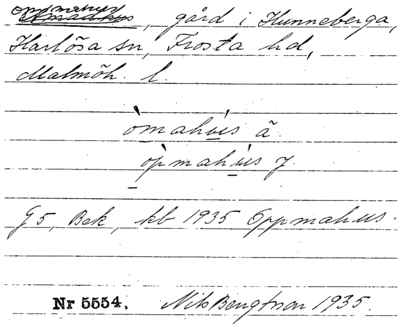 Oppmahus, gård i Hunneberga,
Harlösa sn, Frosta hd,
Malmöh. l.
òmahùis ä.
òpmahùis y.
G 5, Bek, kb 1935 Oppmahus.
Nr 5554. Nils Bengtsson 1935.